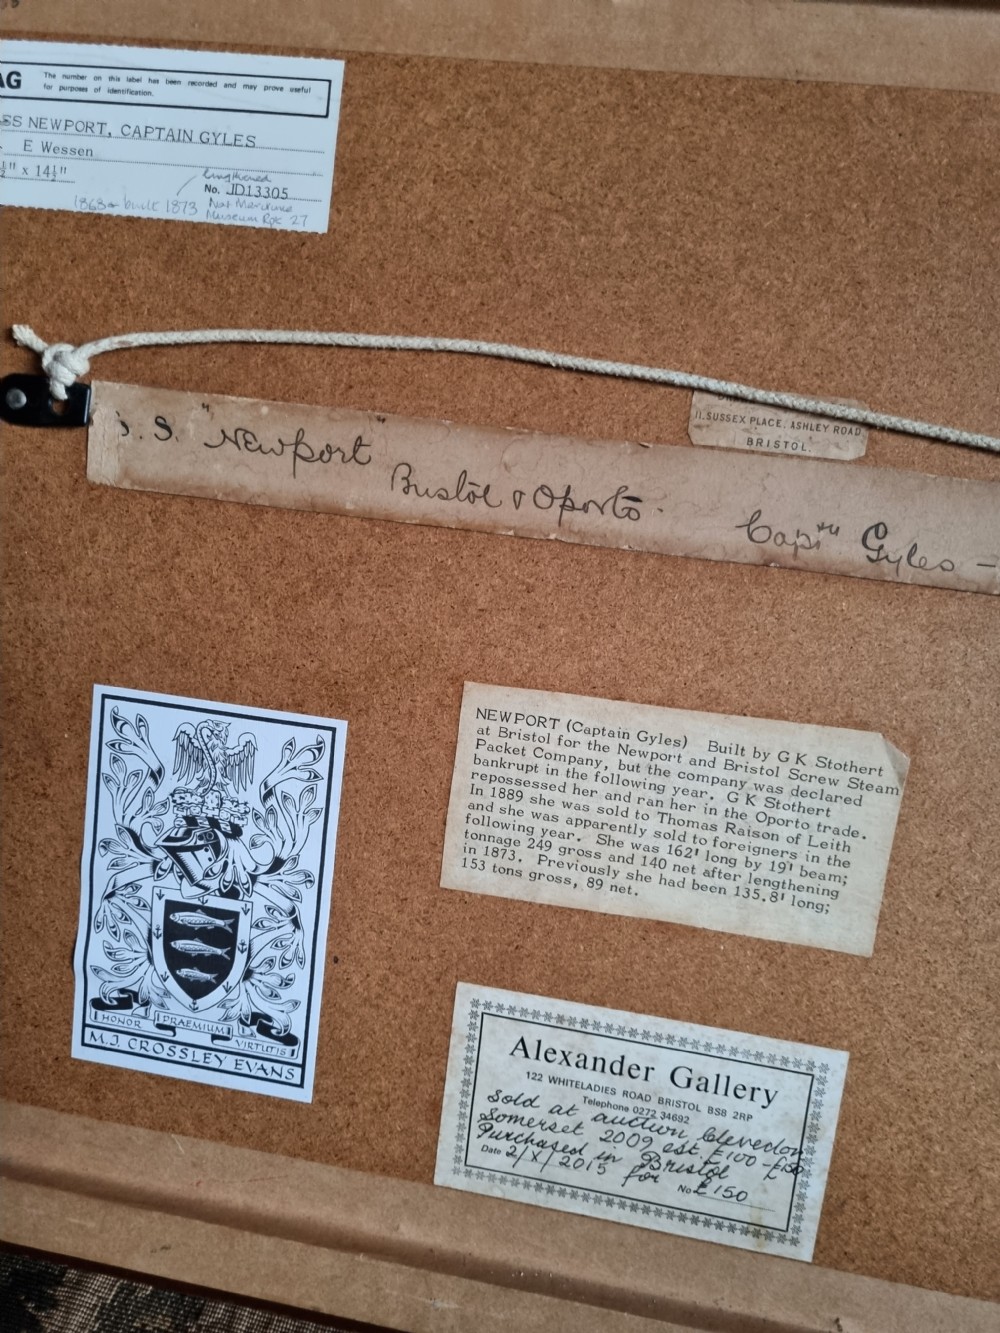 AG
The number on this label has been recorded and may prove useful
for purposes of identification.
SS NEWPORT, CAPTAIN GYLES
E Wessen
½" x 14½"
lengthened
No. JD13305
1868 built 1873
Nat Maritime
Museum Rpt 27
11, SUSSEX PLACE, ASHLEY ROAD,
BRISTOL.
S. S. "Newport"
Bristol & Oporto.
Captn Gyles -
HONOR PRAEMIUM VIRTUTIS
M.J. CROSSLEY EVANS
NEWPORT (Captain Gyles) Built by G K Stothert
at Bristol for the Newport and Bristol Screw Steam
Packet Company, but the company was declared
bankrupt in the following year. G K Stothert
repossessed her and ran her in the Oporto trade.
In 1889 she was sold to Thomas Raison of Leith
and she was apparently sold to foreigners in the
following year. She was 162' long by 19' beam;
tonnage 249 gross and 140 net after lengthening
in 1873. Previously she had been 135.8' long;
153 tons gross, 89 net.
Alexander Gallery
122 WHITELADIES ROAD BRISTOL BS8 2RP
Telephone 0272 34692
Sold at auction Clevedon
Somerset 2009 est. £100-£150
Purchased in Bristol
Date 2/X/2015 for No £150